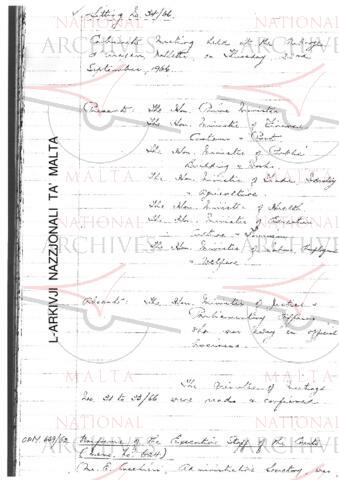 Sitting No. 34/66.
Cabinet's Meeting held at the
Valletta, on Thursday 22nd
September, 1966.
Present: The Hon. Prime Minister
The Hon. Minister of Finance
Customs & Port
The Hon. Minister of Public
Building & Works.
The Hon. Minister of Trade, Industry
& Agriculture
The Hon. Minister of Health
The Hon. Minister of Education
Culture & Tourism
The Hon. Minister of Labour, Employment
& Welfare
Absent: The Hon. Minister of Justice &
Parliamentary Affairs
who was away on official
business.
The Minutes of meetings
No. 31 to 33/66 were read & confirmed
OPM 449/62 Uniforms of the Executive Staff of the
(Memo. No. 624)
Mr. E. Administrative Secretary, was
L-ARKIVJI NAZZJONALI TA' MALTA
NATIONAL
ARCHIVES
MALTA